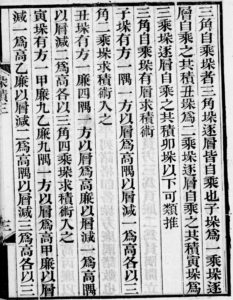 三角自乘垛者三角垛逐層皆自乘也子垛爲一乘垛逐
層自乘之其積丑垛爲二乘垛逐層自乘之其積寅垛爲
三乘垛逐層自乘之其積卯垛以下可類推
三角自乘垛有層求積術
子垛有方一隅一方以層爲高隅以層減一爲高各以三
角二乘垛求積術入之
丑垛有方一廉四隅一方以層爲高廉以層減一爲高隅
以層減二爲高各以三角四乘垛求積術入之
寅垛有方一甲廉九乙廉九隅一方以層爲高甲廉以層
減一爲高乙廉以層減二爲高隅以層減三爲高各以三
垛積三